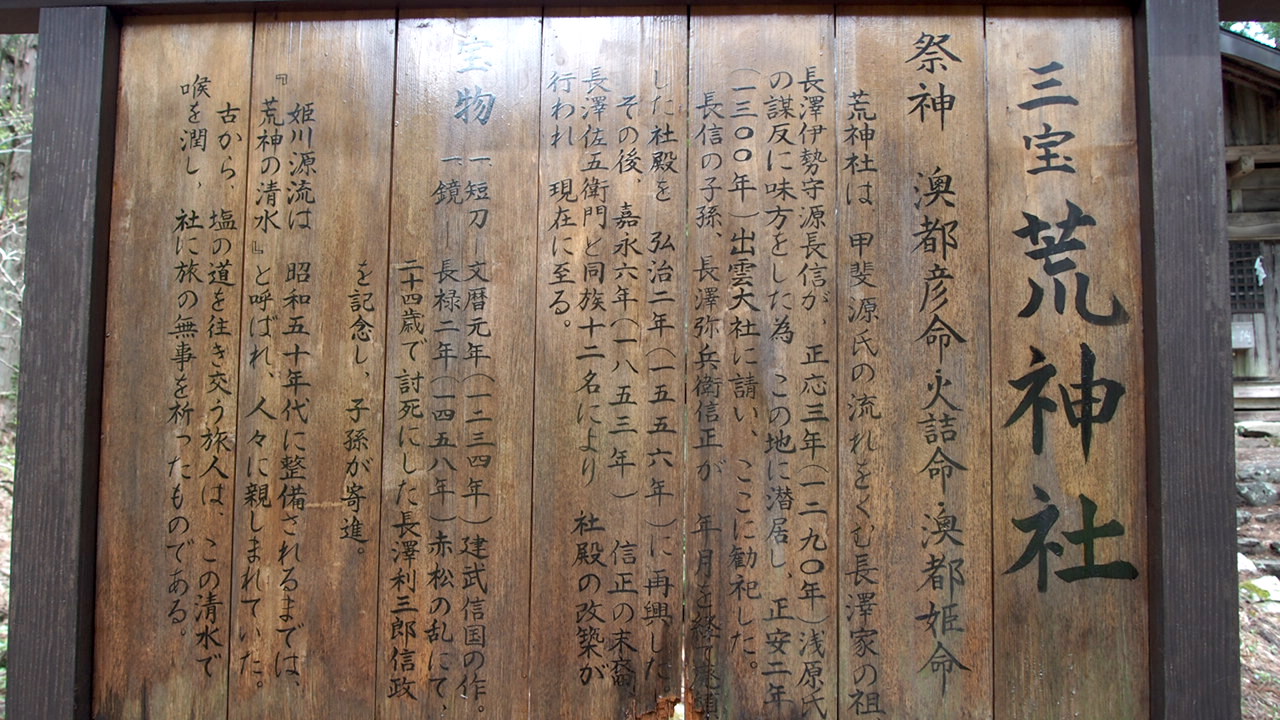 三宝荒神社
祭神 澳都彦命火詰命澳都姫命
荒神社は 甲斐源氏の流れをくむ長澤家の祖
長澤伊勢守源長信が、正応三年(一二九〇年)浅原氏
の謀反に味方をした為 この地に潜居し、正安二年
(一三〇〇年)出雲大社に請い、ここに勧祀した。
長信の子孫、長澤弥兵衛信正が 年月を経て
した社殿を 弘治二年(一五五六年)に再興した
その後、嘉永六年(一八五三年) 信正の末裔
長澤佐五衛門と同族十二名により 社殿の改築が
行われ 現在に至る。
宝物 一 短刀―文暦元年(一二三四年)建武信国の作。
一 鏡―長禄二年(一四五八年)赤松の乱にて、
二十四歳で討死にした長澤利三郎信政
を記念し、子孫が寄進。
姫川源流は 昭和五十年代に整備されるまでは、
『荒神の清水』と呼ばれ、人々に親しまれていた。
古から、塩の道を往き交う旅人は、この清水で
喉を潤し、社に旅の無事を祈ったものである。